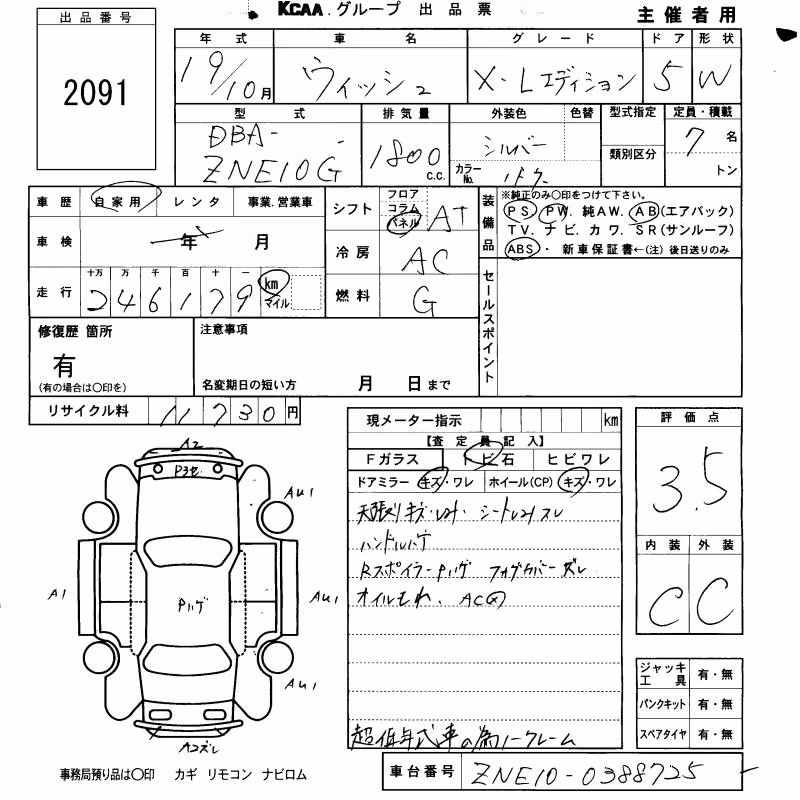 KCAA.グループ 出品票
主催者用
出品番号
2091
年式 車名 グレード ドア 形状
19/10月 ウィッシュ X-Lエディション 5 W
型式 排気量 外装色 色替 型式指定 定員・積載
DBA-
ZNE10G 1800 c.c. シルバー 7名
カラーNo. 類別区分 トン
車歴 自家用 レンタ 事業.営業車
車検 年 月
走行 十万 万 千 百 十 一
246179 km マイル
シフト フロア コラム パネル AT
冷房 AC
燃料 G
装備品 ※純正のみ〇印をつけて下さい。
PS PW. 純AW. AB(エアバック)
TV. ナビ. カワ. SR(サンルーフ)
ABS・ 新車保証書←(注) 後日送りのみ
セールスポイント
修復歴 箇所
有
(有の場合は〇印を)
注意事項
名変期日の短い方 月 日まで
リサイクル料 11730円
現メーター指示 km
【査定員記入】
Fガラス トビ石 ヒビワレ
ドアミラー キズ・ワレ ホイール(CP) キズ・ワレ
天張りキズ・ヨゴレ シートヨゴレスレ
ハンドルハゲ
Rスポイラー Pハゲ フォグカバーズレ
オイルもれ、
超低年式車の為ノークレーム
評価点
3.5
内装 外装
C C
ジャッキ 工具 有・無
パンクキット 有・無
スペアタイヤ 有・無
A2
AU1
A1
Pハゲ
AU1
AU1
A2ズレ
事務局預り品は〇印 カギ リモコン ナビロム
車台番号 ZNE10-0388725